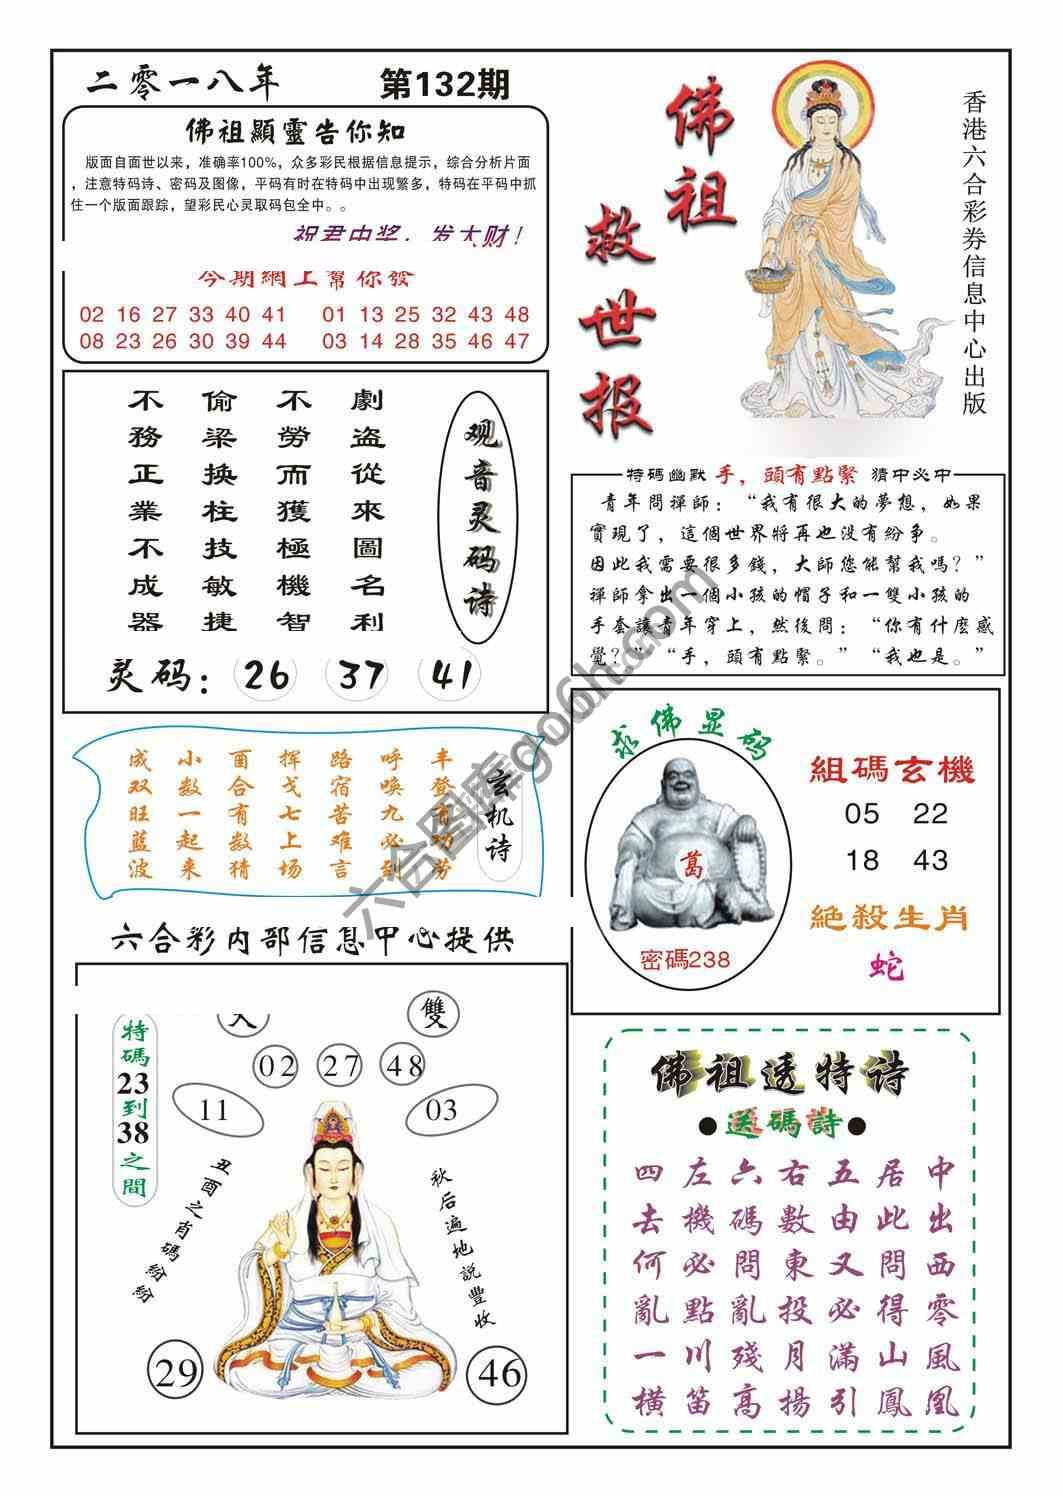 二零一八年
第132期
佛祖顯靈告你知
版面自面世以来，准确率100%，众多彩民根据信息提示，综合分析片面
，注意特码诗、密码及图像，平码有时在特码中出现繁多，特码在平码中抓
住一个版面跟踪，望彩民心灵取码包全中。。
祝君中奖，发大财！
今期網上幫你發
02 16 27 33 40 41 01 13 25 32 43 48
08 23 26 30 39 44 03 14 28 35 46 47
佛祖
救世报
香港六合彩券信息中心出版
观音灵码诗
劇盗從來圖名利
不勞而獲極機智
偷梁换柱技敏捷
不務正業不成器
灵码：26 37 41
特碼幽默 手，頭有點緊 猜中必中
青年問禪師：“我有很大的夢想，如果
實現了，這個世界將再也没有紛争。
因此我需要很多錢，大師您能幫我嗎？”
禪師拿出一個小孩的帽子和一雙小孩的
手套讓青年穿上，然後問：“你有什麽感
覺？”“手，頭有點緊。”“我也是。”
玄机诗
丰登有功劳
呼唤九必到
路宿苦难言
挥戈七上场
酉合有数猜
小数一起来
成双旺蓝波
求佛显码
葛
密碼238
組碼玄機
05 22
18 43
絶殺生肖
蛇
六合彩内部信息中心提供
特碼23到38之間
雙
02 27 48
11 03
丑酉之肖碼紛紛
秋后遍地説豐收
29 46
佛祖透特诗
●送碼詩●
中出西零風凰
居此問得山鳳
五由又必滿引
右數東投月揚
六碼問亂殘高
左機必點川笛
四去何亂一横
六合图库go6h.com